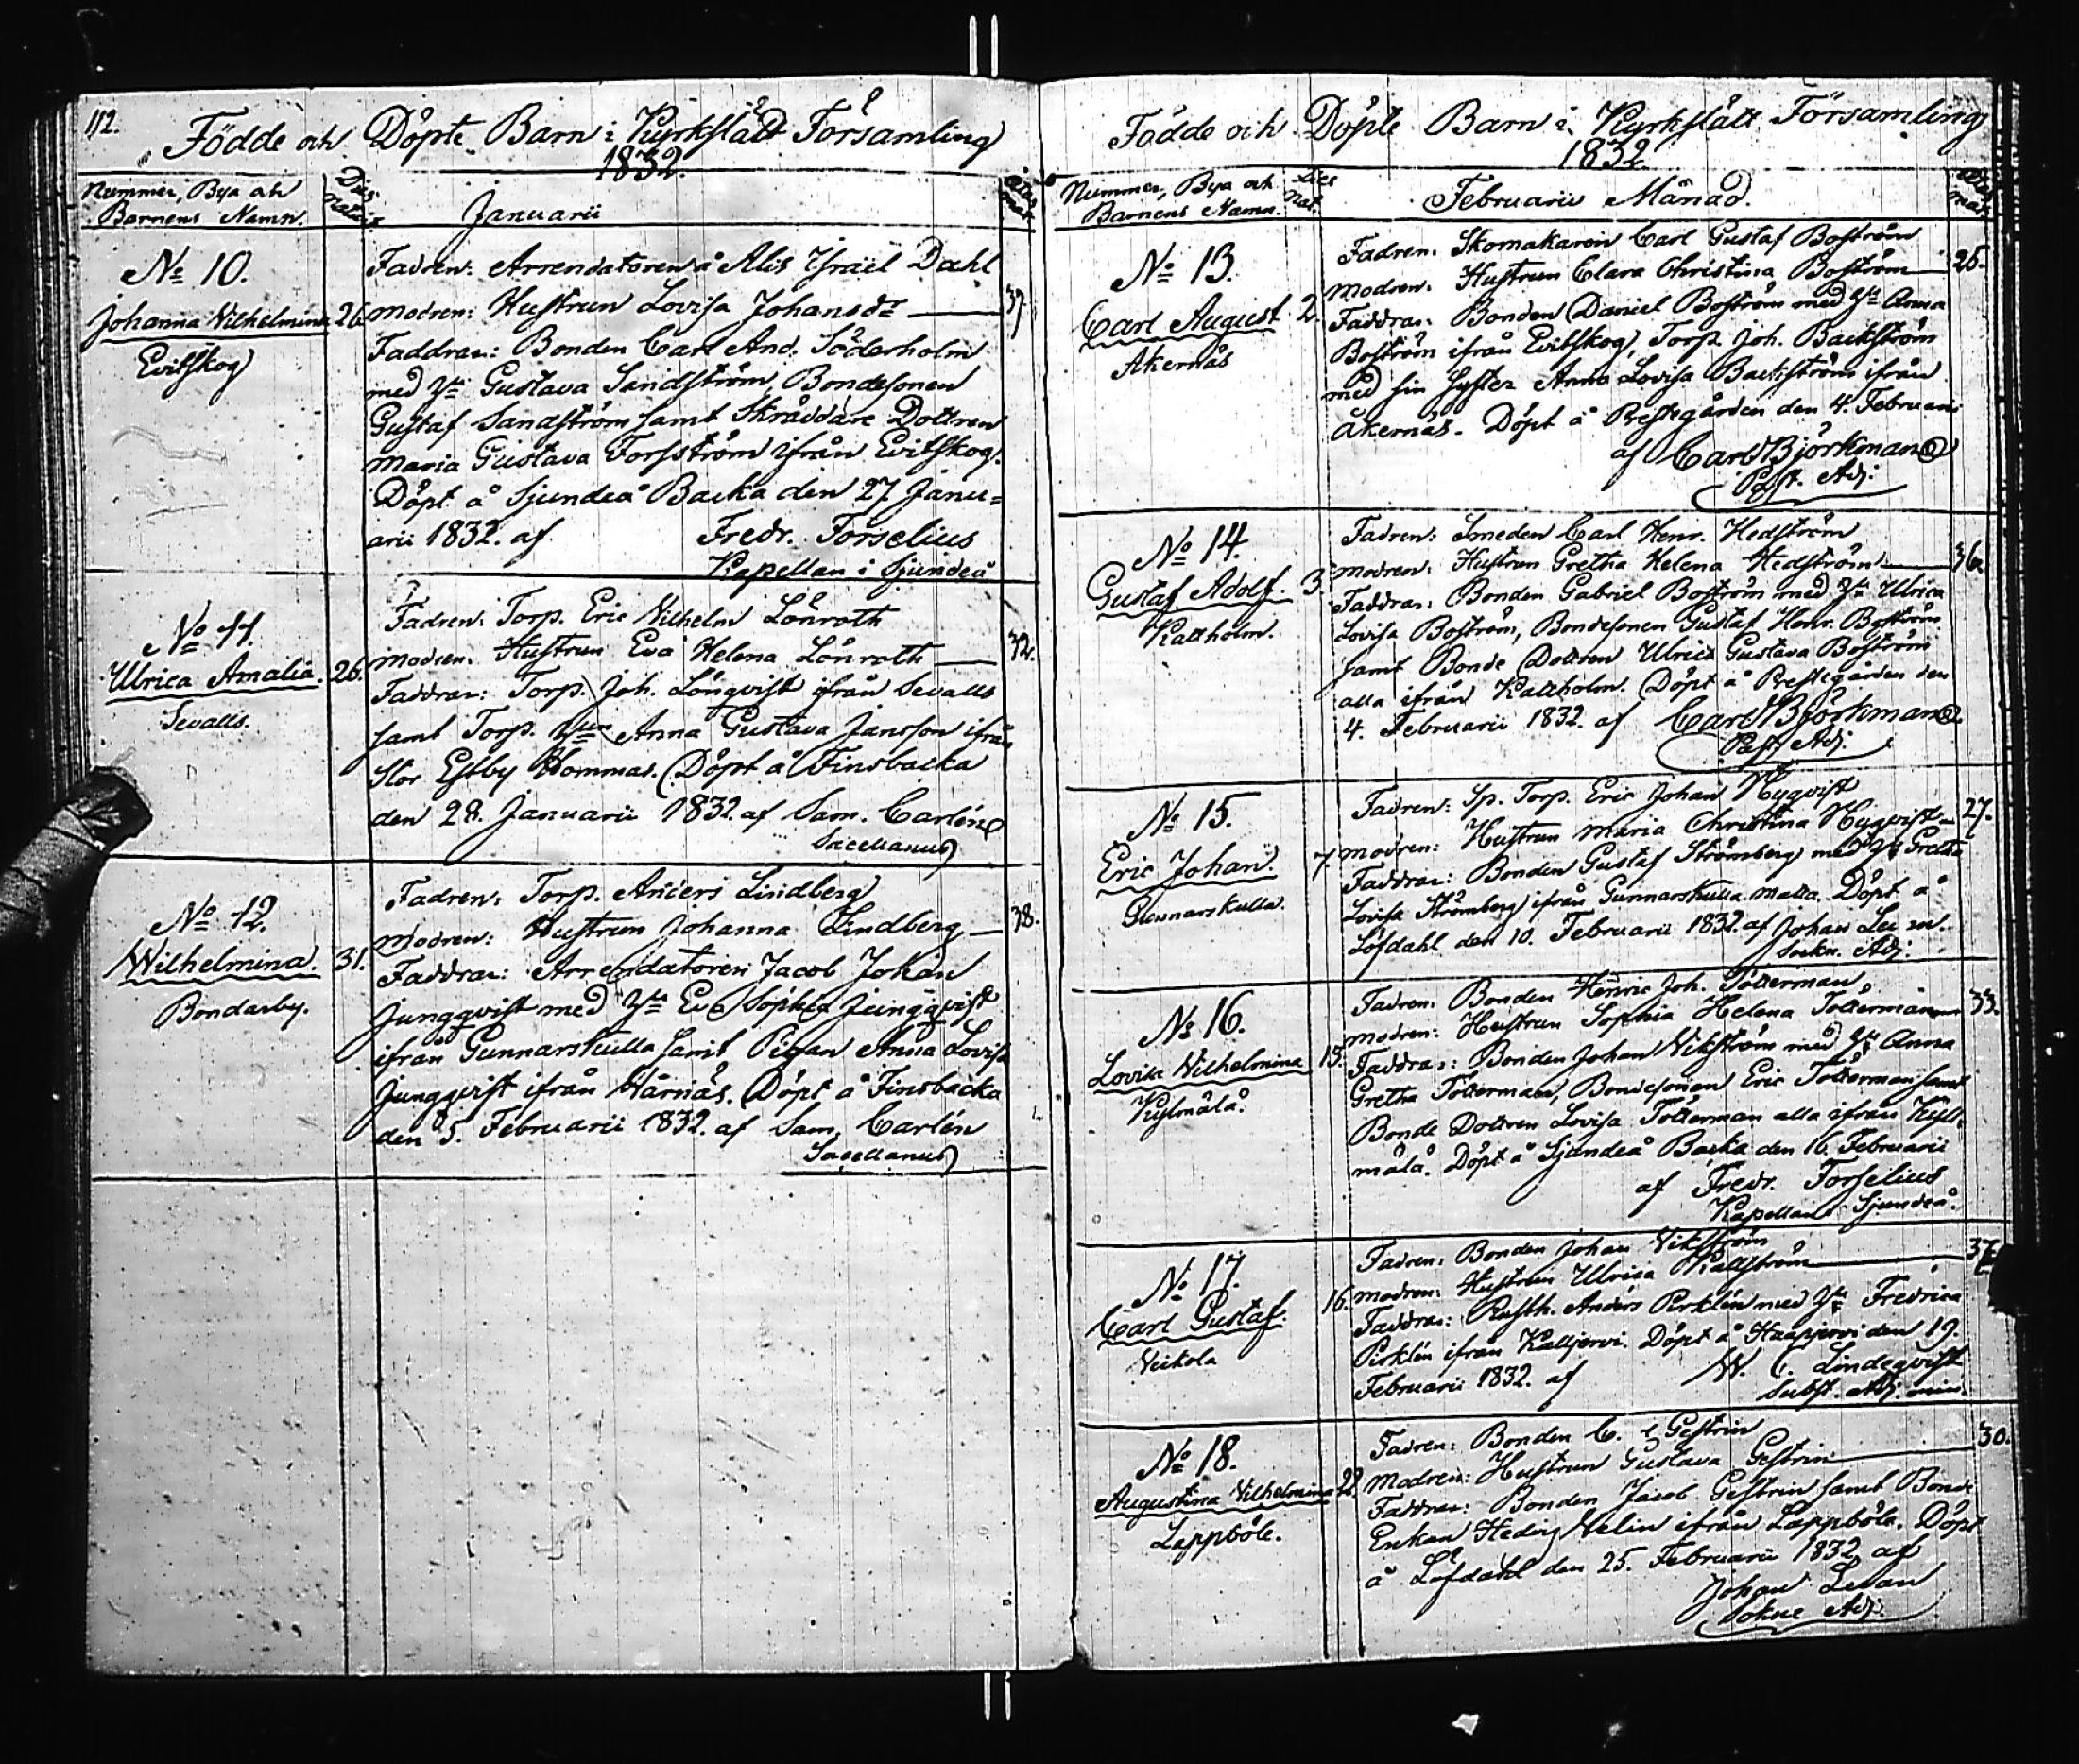 112.
Födde och Döpte Barn i Kyrkslätt Församling
1832.
Nummer, Bya och
Barnens Namn.
Dies
Natalis.
Januarii
Ætas
mat.
No 10.
Johanna Wilhelmina
Evitskog
26.
Fadren: Arrendatoren å Alis Israël Dahl
Modren: Hustrun Lovisa Johansdr
Faddrar: Bonden Carl And. Söderholm
med Hu Gustava Sandström, Bondesonen
Gustaf Sandström samt Skräddare Dottren
Maria Gustava Forsström ifrån Evitskog.
Döpt å Sjundeå Backa den 27 Janu=
arii 1832. af Fredr. Forselius
Kapellan i Sjundeå
No 11.
Ulrica Amalia.
Sevalls.
26.
Fadren: Torp. Eric Wilhelm Lönroth
Modren: Hustrun Eva Helena Lönroth
32.
Faddrar: Torp. Joh. Lönqvist ifrån Sevalls
samt Torp. Hun Anna Gustava Jansson ifrån
Stor Estby Hommas. Döpt å Finsbacka
den 28. Januarii 1832. af Sam. Carlén
Sacellanus
No 12.
Wilhelmina.
Bondarby.
31.
Fadren: Torp. Anders Lindberg
Modren: Hustrun Johanna Lindberg
38.
Faddrar: Arrendatoren Jacob Johan
Jungqvist med Hu Eva Sophia Jungqvist
ifrån Gunnarskulla samt Pigan Anna Lovisa
Jungqvist ifrån Wårnäs. Döpt å Finsbacka
den 5. Februarii 1832. af Sam. Carlén
Sacellanus
Födde och Döpte Barn i Kyrkslätt Församling
1832.
Nummer, Bya och
Barnens Namn.
Dies
Nat.
Februarii Månad.
Æt.
mat.
No 13.
Carl August
Åkernäs
2.
Fadren: Skomakaren Carl Gustaf Boström
Modren: Hustrun Clara Christina Boström
25.
Faddrar: Bonden Daniel Boström med Hu Anna
Boström ifrån Evitskog, Torp. Joh. Backström
med sin syster Anna Lovisa Backström ifrån
Åkernäs. Döpt å Prestegården den 4. Februarii
af Carl Björkman
Past. Adj.
No 14.
Gustaf Adolf.
Kattholm.
3.
Fadren: Smeden Carl Henr. Hedström
Modren: Hustrun Gretha Helena Hedström
36.
Faddrar: Bonden Gabriel Boström med Hu Ulrica
Lovisa Boström, Bondesonen Gustaf Henr. Boström
samt Bonde Dottren Ulrica Gustava Boström
alla ifrån Kattholm. Döpt å Prestegården den
4. Februarii 1832. af Carl Björkman
Past. Adj.
No 15.
Eric Johan.
Gunnarskulla.
7.
Fadren: Sp. Torp. Eric Johan Nyqvist
Modren: Hustrun Maria Christina Nyqvist
27.
Faddrar: Bonden Gustaf Strömberg med Hu Gretha
Lovisa Strömberg ifrån Gunnarskulla Malla. Döpt å
Löfdahl den 10. Februarii 1832. af Johan
Sockn. Adj.
No 16.
Lovisa Wilhelmina
Kylmälä.
15.
Fadren: Bonden Henric Joh. Tötterman
Modren: Hustrun Sophia Helena Tötterman
33.
Faddrar: Bonden Johan Wikström med Hu Anna
Gretha Tötterman, Bondesonen Eric Tötterman samt
Bonde Dottren Lovisa Tötterman alla ifrån Kyl-
mälä. Döpt å Sjundeå Backa den 16. Februarii
af Fredr. Forselius
Kapellan i Sjundeå.
No 17.
Carl Gustaf.
Veikola
16.
Fadren: Bonden Johan Wikström
Modren: Hustrun Ulrica Wikström
37.
Faddrar: Rusth. Anders Pirklén med Hu Fredrica
Pirklén ifrån Kalljervi. Döpt å Haapjervi den 19.
Februarii 1832. af W. C. Lindeqvist
Subst. Adj. min.
No 18.
Augustina Wilhelmina
Lappböle.
22.
Fadren: Bonden C. Gestrin
Modren: Hustrun Gustava Gestrin
30.
Faddrar: Bonden Jacob Gestrin samt Bonde
Enkan Hedvig Velin ifrån Lappböle. Döpt
å Löfdahl den 25. Februarii 1832 af
Johan Levan
Sokne Adj.